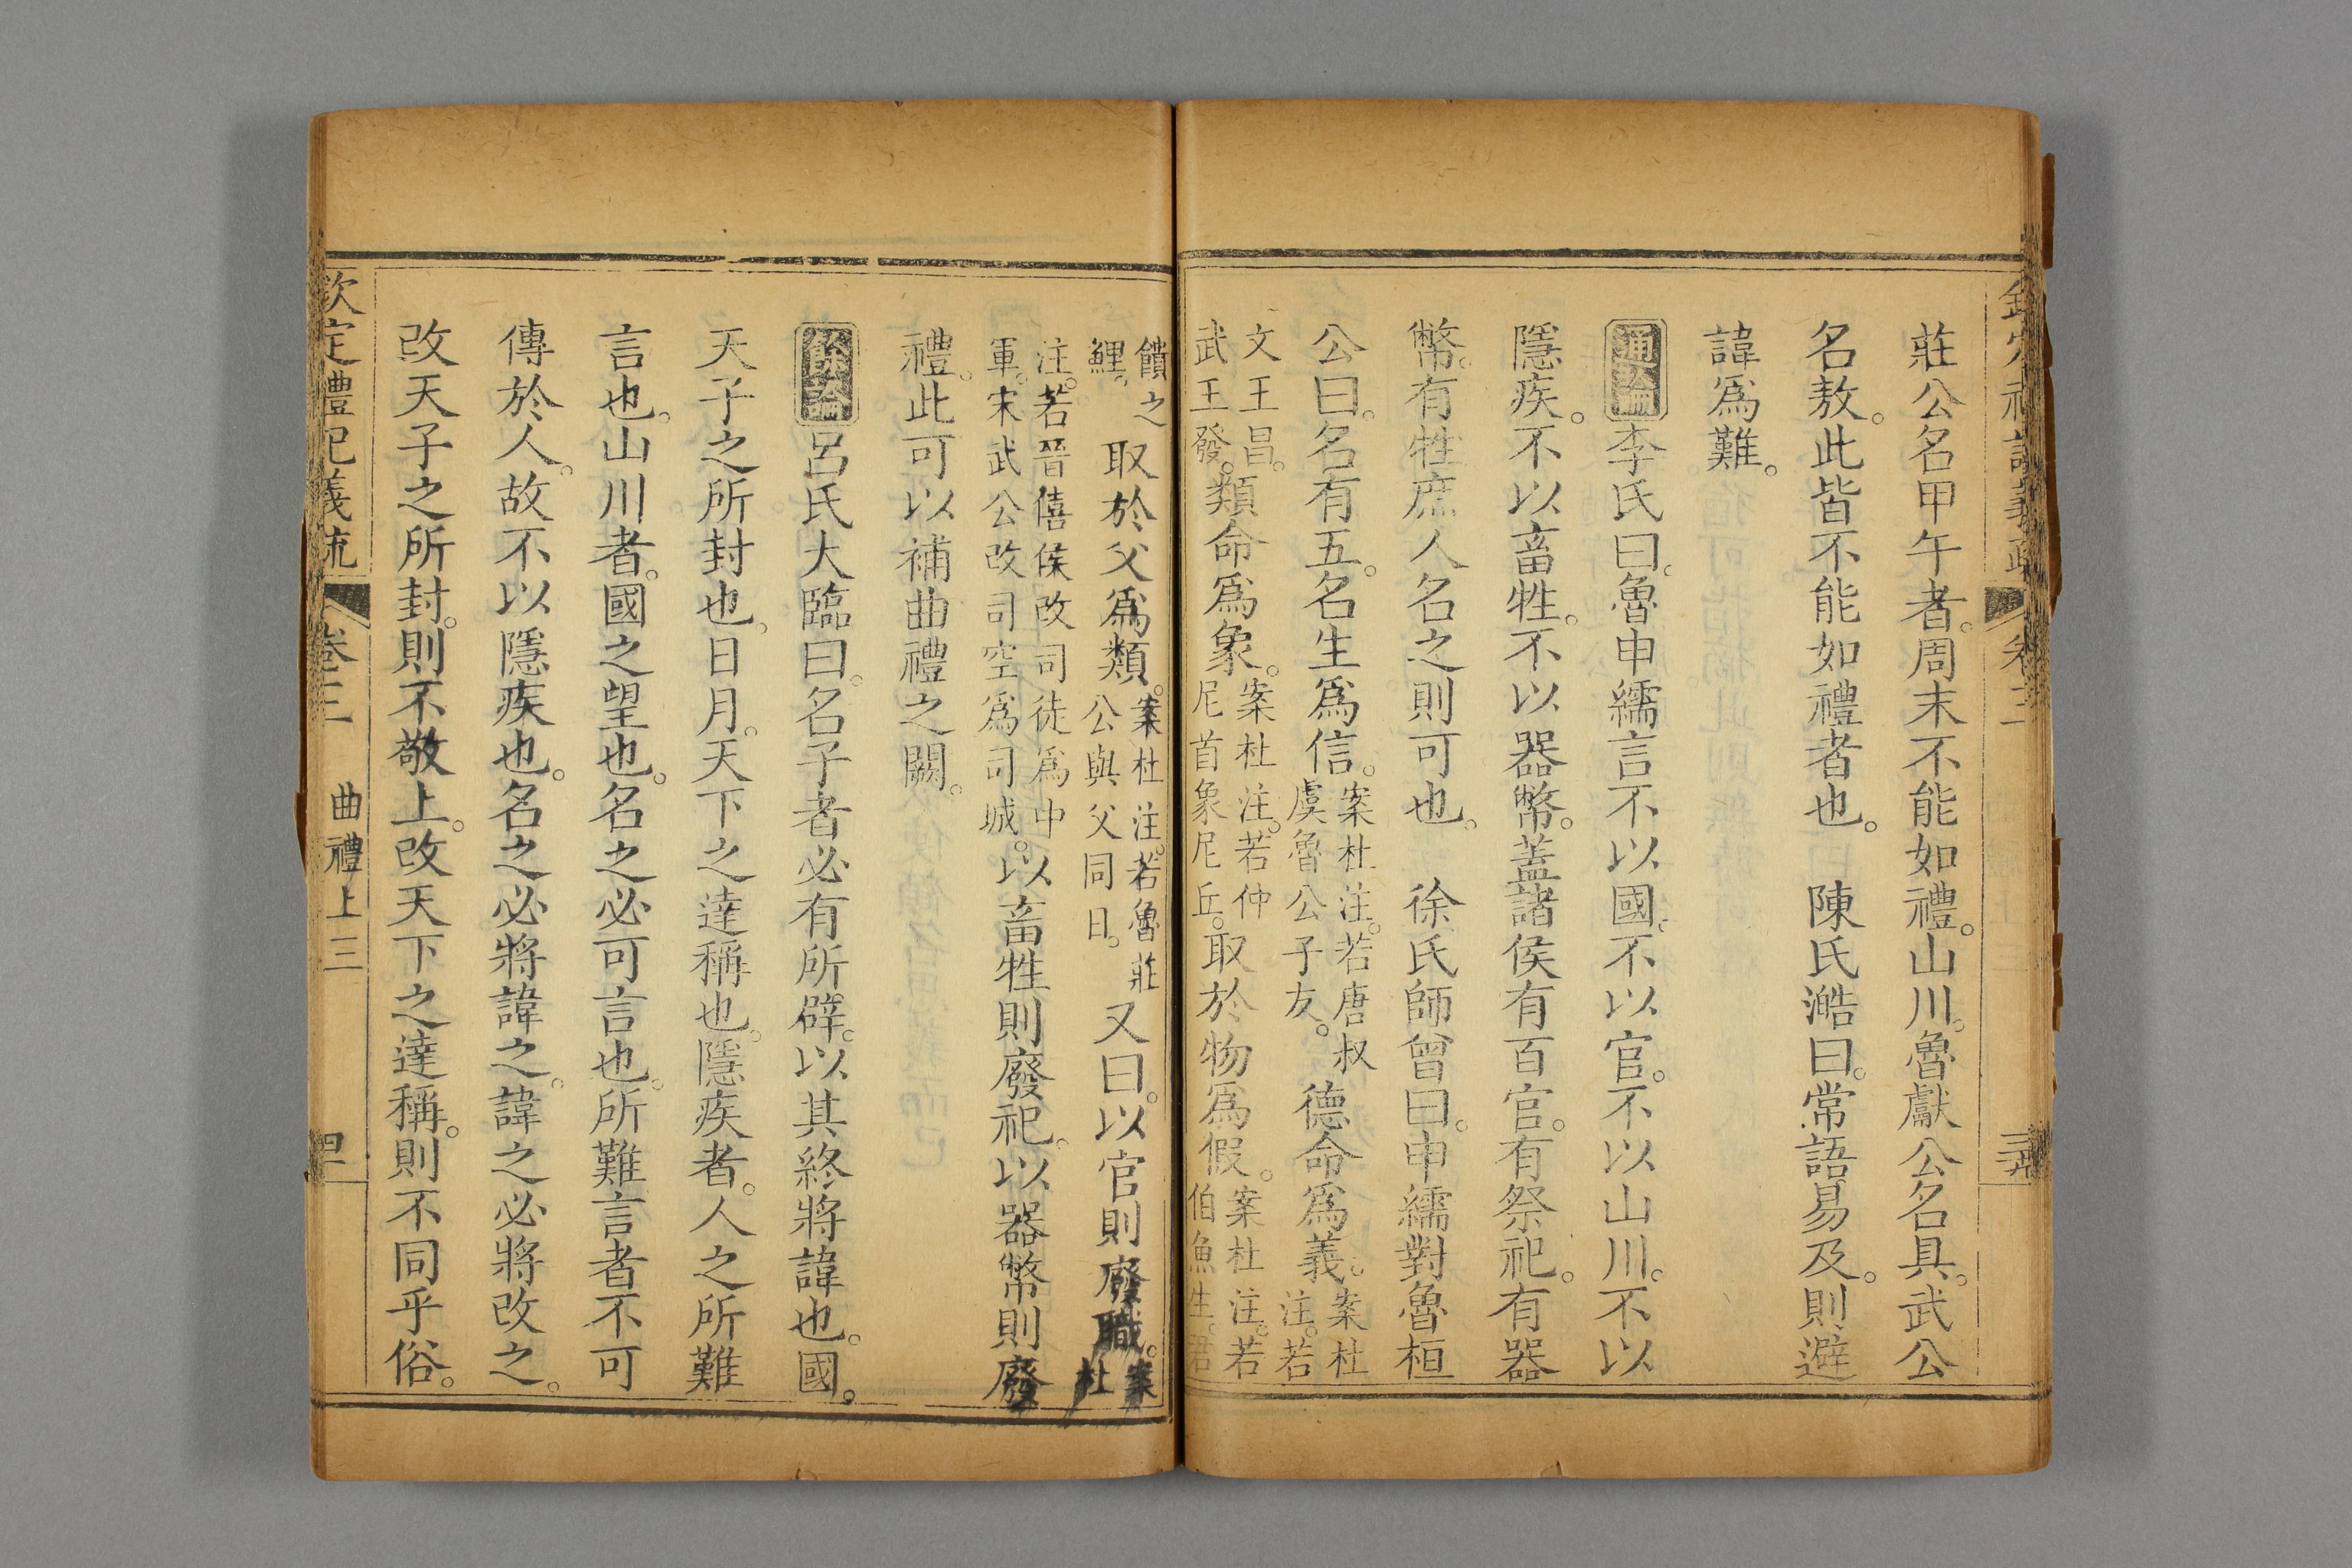 莊公名甲午者。周末不能如禮。山川。魯獻公名具。武公
名敖。此皆不能如禮者也。　陳氏澔曰。常語易及。則避
諱爲難。
通論李氏曰。魯申繻言不以國。不以官。不以山川。不以
隱疾。不以畜牲。不以器幣。蓋諸侯有百官。有祭祀。有器
幣。有牲庶人名之則可也。　徐氏師曾曰。申繻對魯桓
公曰。名有五。名生爲信。案杜注。若唐叔虞魯公子友。德命爲義。案杜注。若
文王昌。武王發。類命爲象。案杜注。若仲尼首象尼丘。取於物爲假。案杜注。若伯魚生。君
饋之鯉。取於父爲類。案杜注。若魯莊公與父同日。又曰。以官則廢職。案杜
注。若晉僖侯改司徒爲中軍。宋武公改司空爲司城。以畜牲則廢祀。以器幣則廢
禮。此可以補曲禮之闕。
餘論呂氏大臨曰。名子者必有所辟。以其終將諱也。國。
天子之所封也。日月。天下之達稱也。隱疾者。人之所難
言也。山川者。國之望也。名之必可言也。所難言者不可
傳於人。故不以隱疾也。名之必將諱之。諱之必將改之。
改天子之所封。則不敬上。改天下之達稱。則不同乎俗。
欽定禮記義疏　卷三　曲禮上三